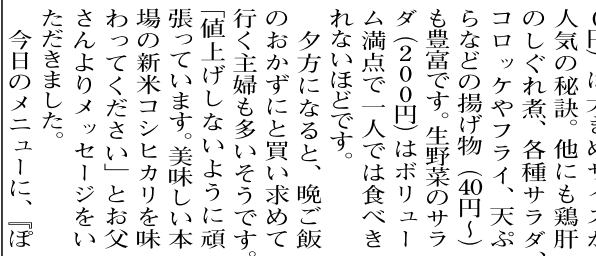 人気の秘訣。他にも鶏肝
のしぐれ煮、各種サラダ、
コロッケやフライ、天ぷ
らなどの揚げ物（40円〜）
も豊富です。生野菜のサラ
ダ（200円）はボリュー
ム満点で一人では食べき
れないほどです。
夕方になると、晩ご飯
のおかずにと買い求めて
行く主婦も多いそうです。
「値上げしないように頑
張っています。美味しい本
場の新米コシヒカリを味
わってください」とお父
さんよりメッセージをい
ただきました。
今日のメニューに、『ぽ